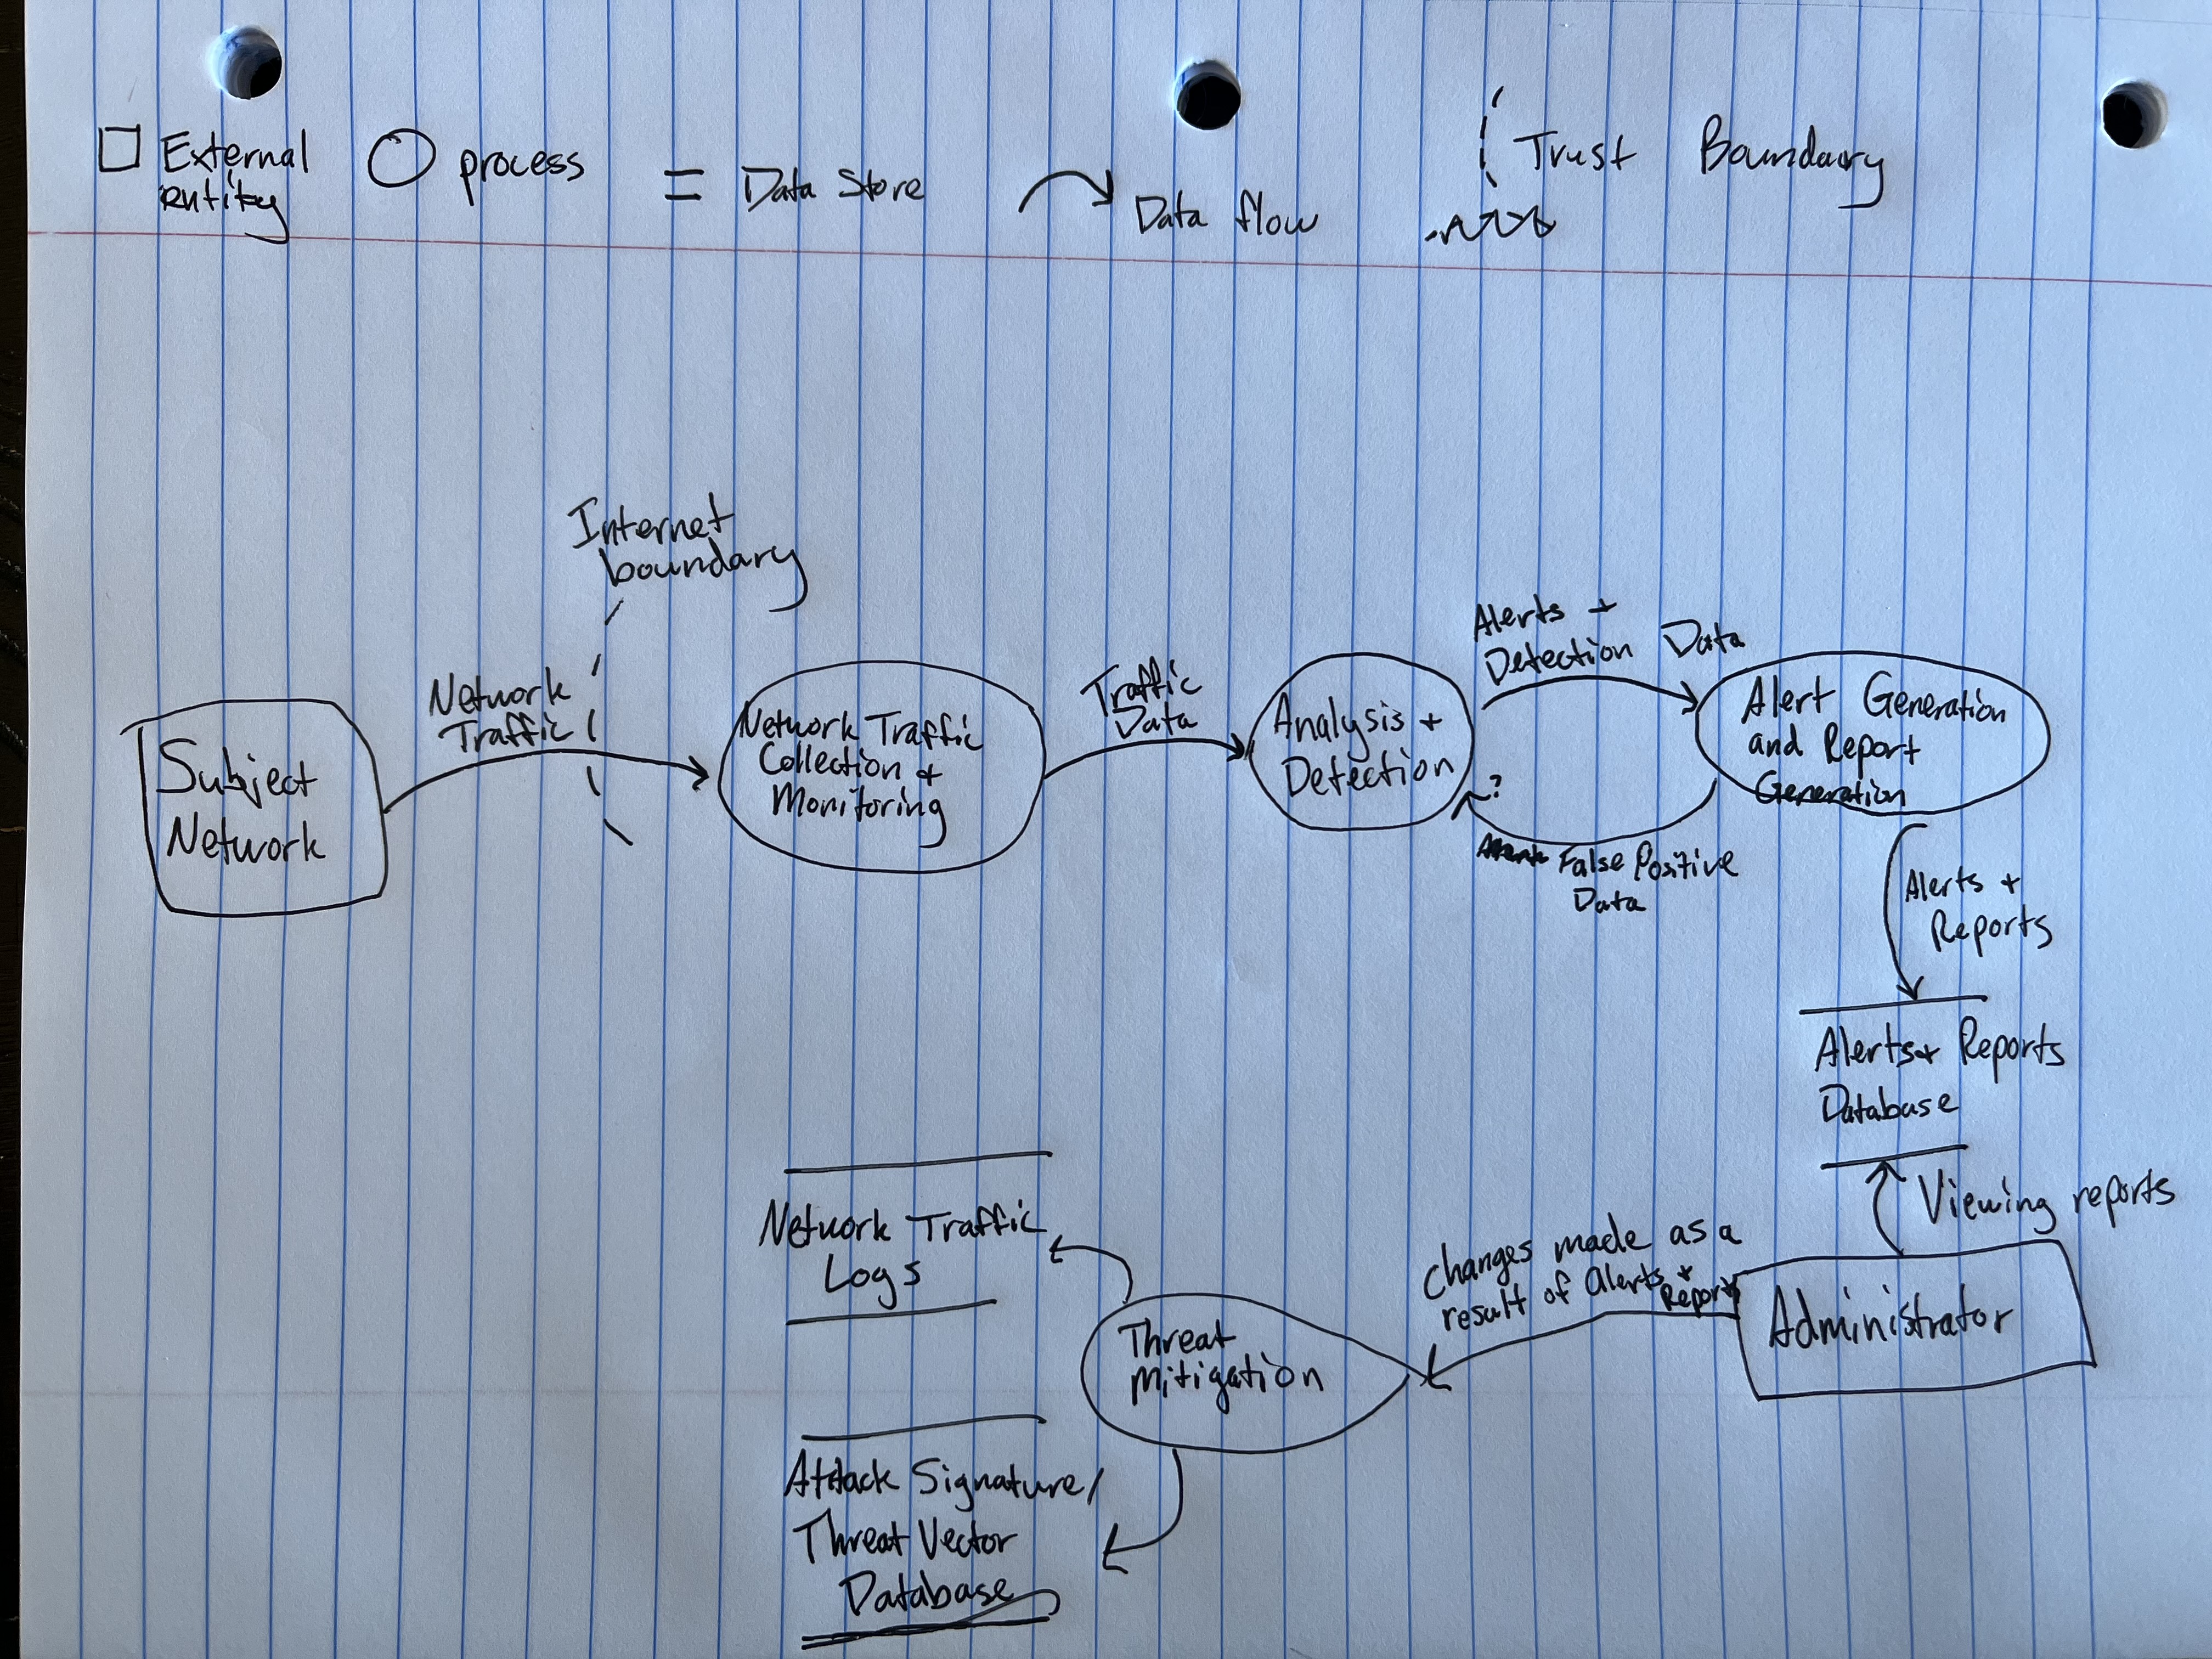 External
entity
process
Data Store
Data flow
Trust Boundary
Internet
boundary
Network
Traffic
Subject
Network
Network Traffic
Collection +
Monitoring
Traffic
Data
Analysis +
Detection
Alerts +
Detection Data
Alert Generation
and Report
Generation
?
False Positive
Data
Alerts +
Reports
Alerts + Reports
Database
Viewing reports
Administrator
Changes made as a
result of Alerts +
Reports
Threat
Mitigation
Network Traffic
Logs
Attack Signature/
Threat Vector
Database